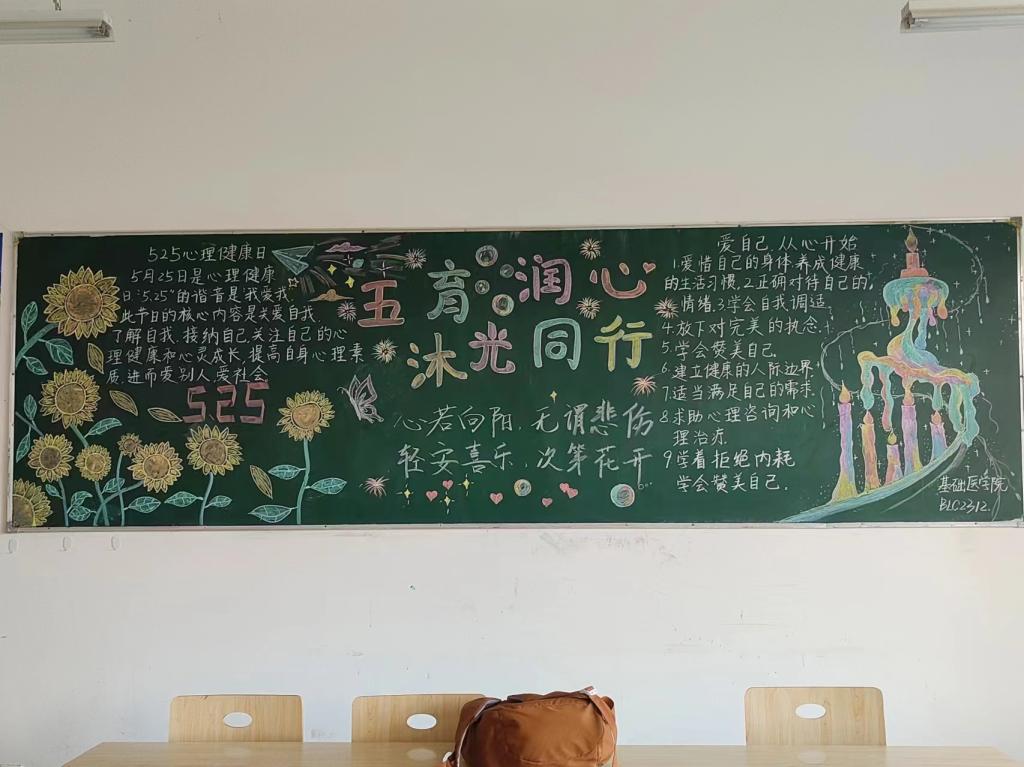 525心理健康日
5月25日是心理健康
日"5.25"的谐音是"我爱我"
此节日的核心内容是关爱自我,
了解自我,接纳自己,关注自己的心
理健康和心灵成长,提高自身心理素
质,进而爱别人,爱社会
525
五育润心
沐光同行
心若向阳,无谓悲伤
轻安喜乐,次第花开...
爱自己,从心开始
1.爱惜自己的身体,养成健康
的生活习惯,2.正确对待自己的
情绪,3.学会自我调适,
4.放下对完美的执念.
5.学会赞美自己.
6.建立健康的人际边界
7.适当满足自己的需求
8.求助心理咨询和心
理治疗.
9学着拒绝内耗
学会赞美自己.
基础医学院
BLC2312.